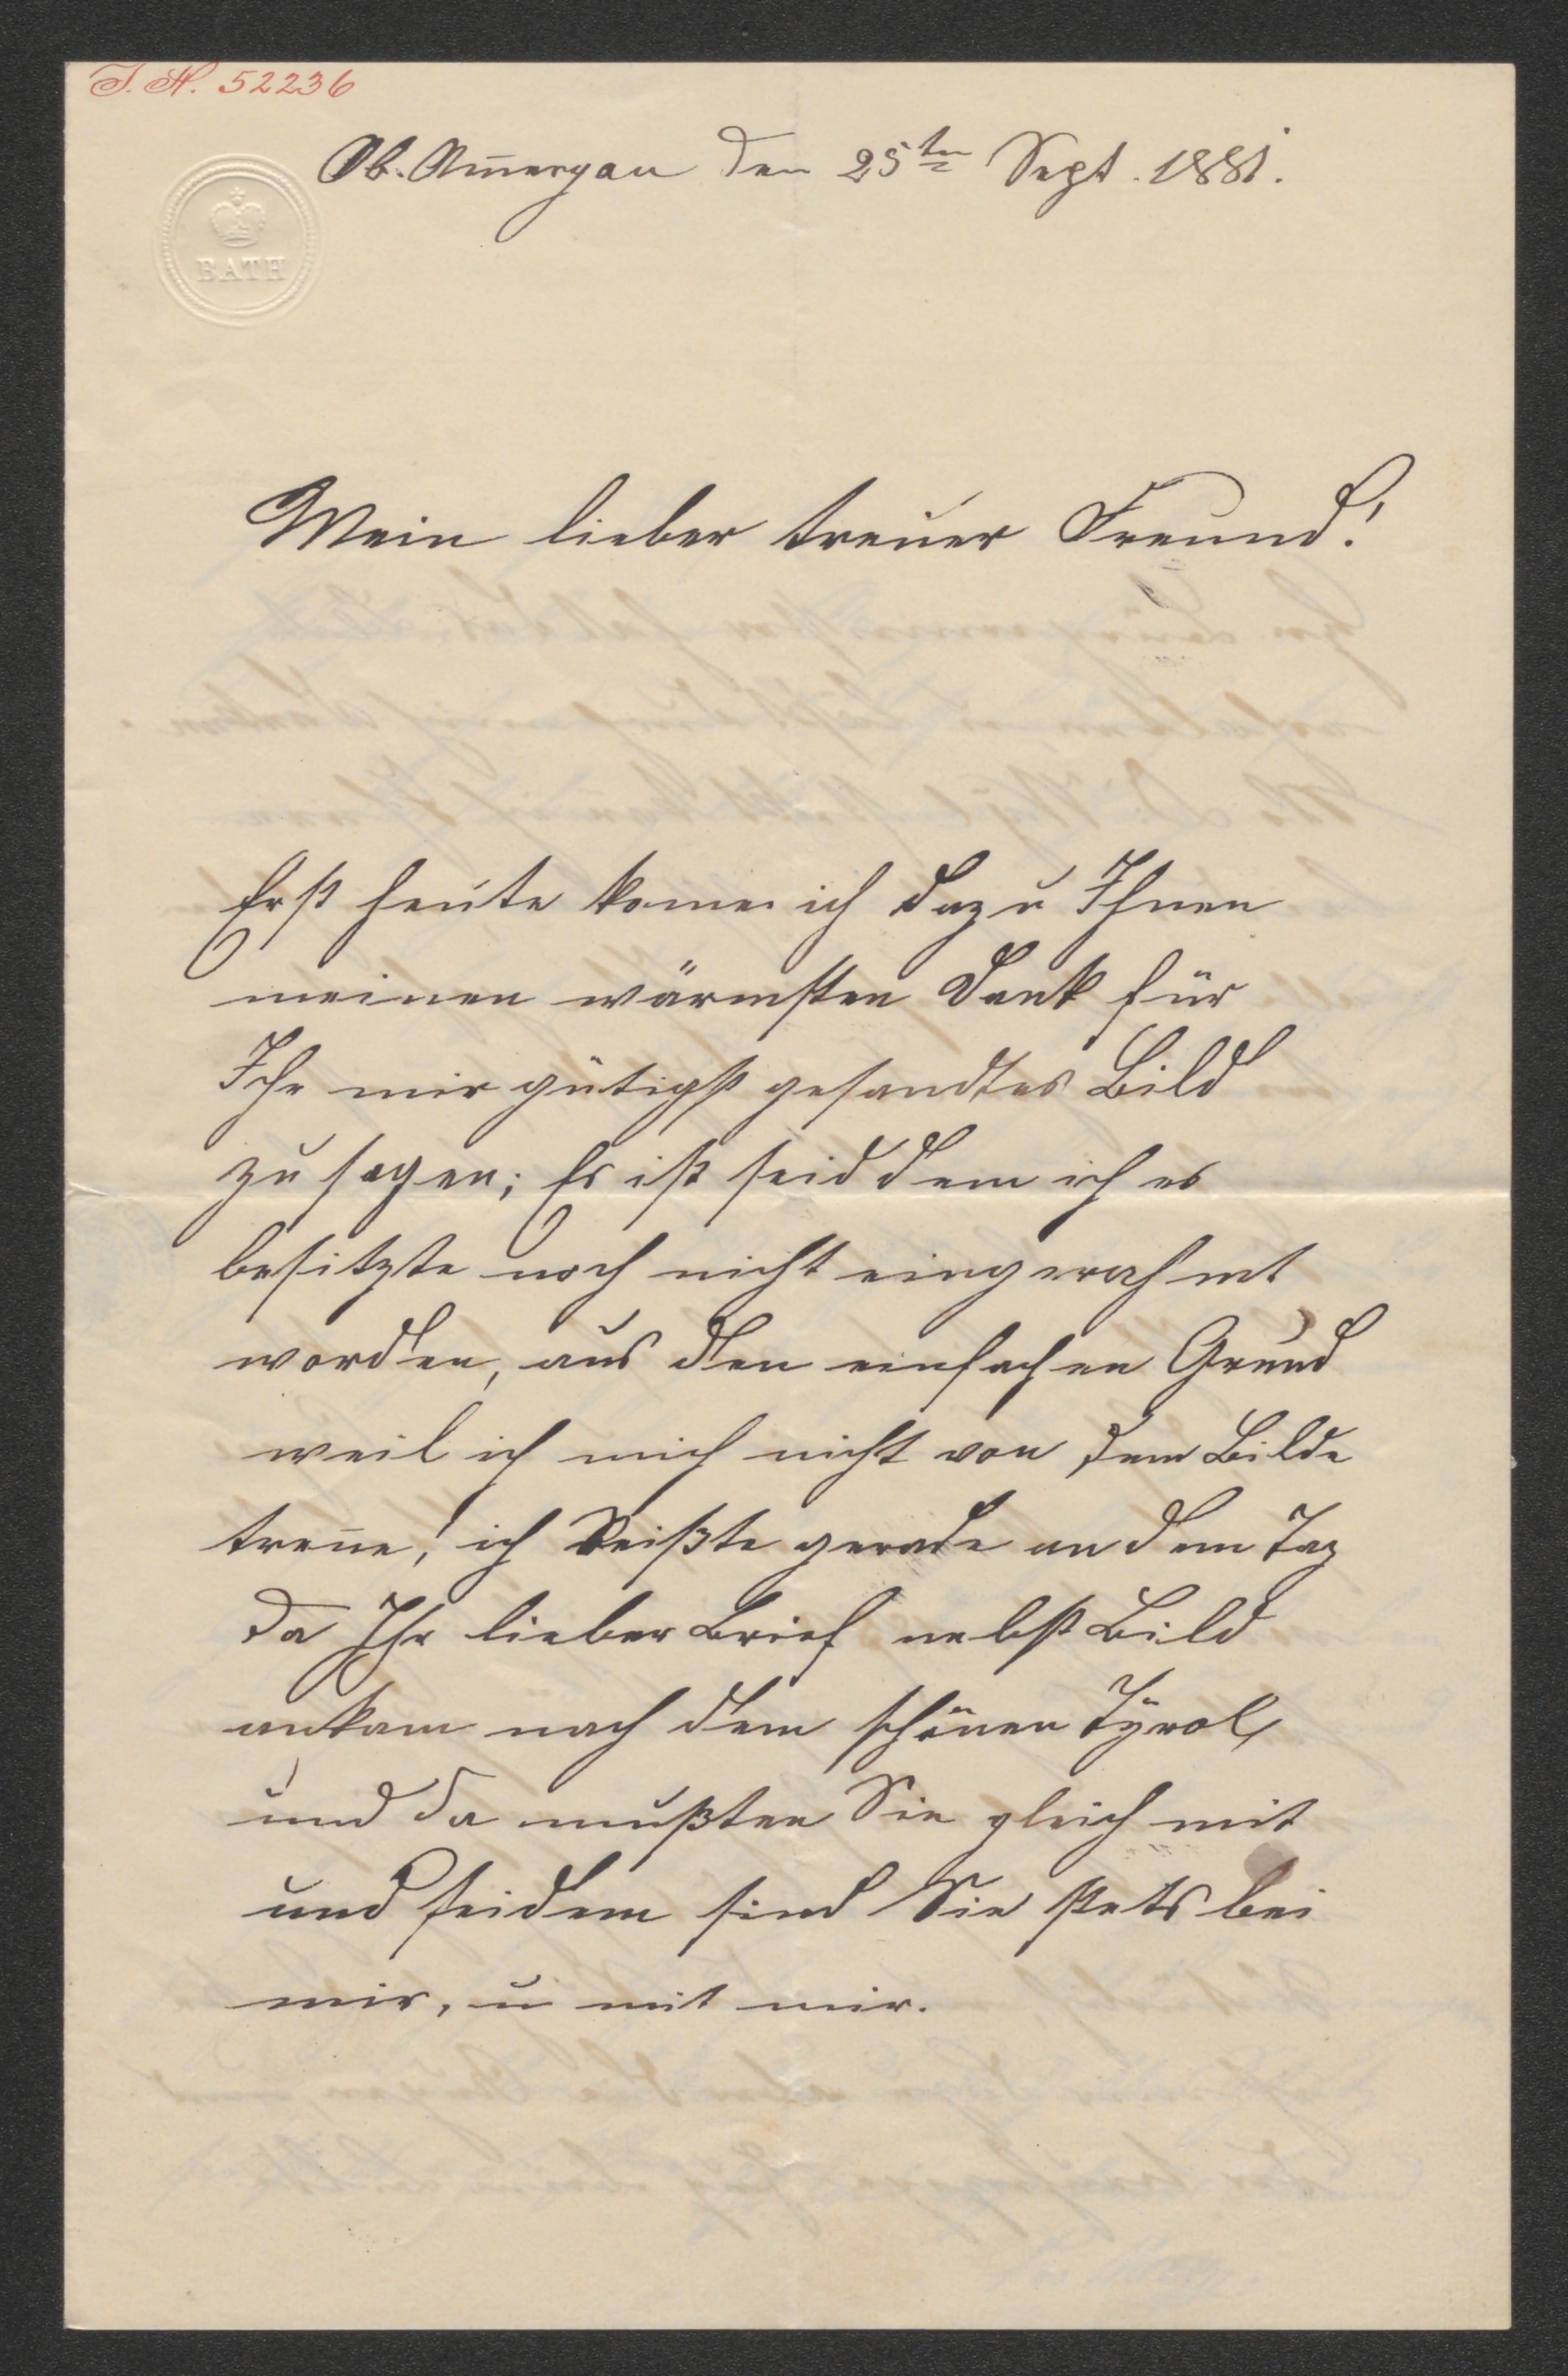 I. N. 52236
Ob. Am̅ergau den 25ten Sept. 1881.
BATH
Mein lieber treuer Freund!
Erst heute kome ich dazu Ihnen
meinen wärmsten Dank für
Ihr mir gütigst gesandtes Bild
zu sagen; Es ist seid dem ich es
besitzte noch nicht eingerahmt
worden, aus den einfachen Grund
weil ich mich nicht von dem Bilde
tren̅e! ich Reißte gerade an dem Tag
da Ihr lieber Brief nebst Bild
ankam nach dem schönen Tÿrol,
und da mußten Sie gleich mit
und seidem sind Sie stets bei
mir, u mit mir.